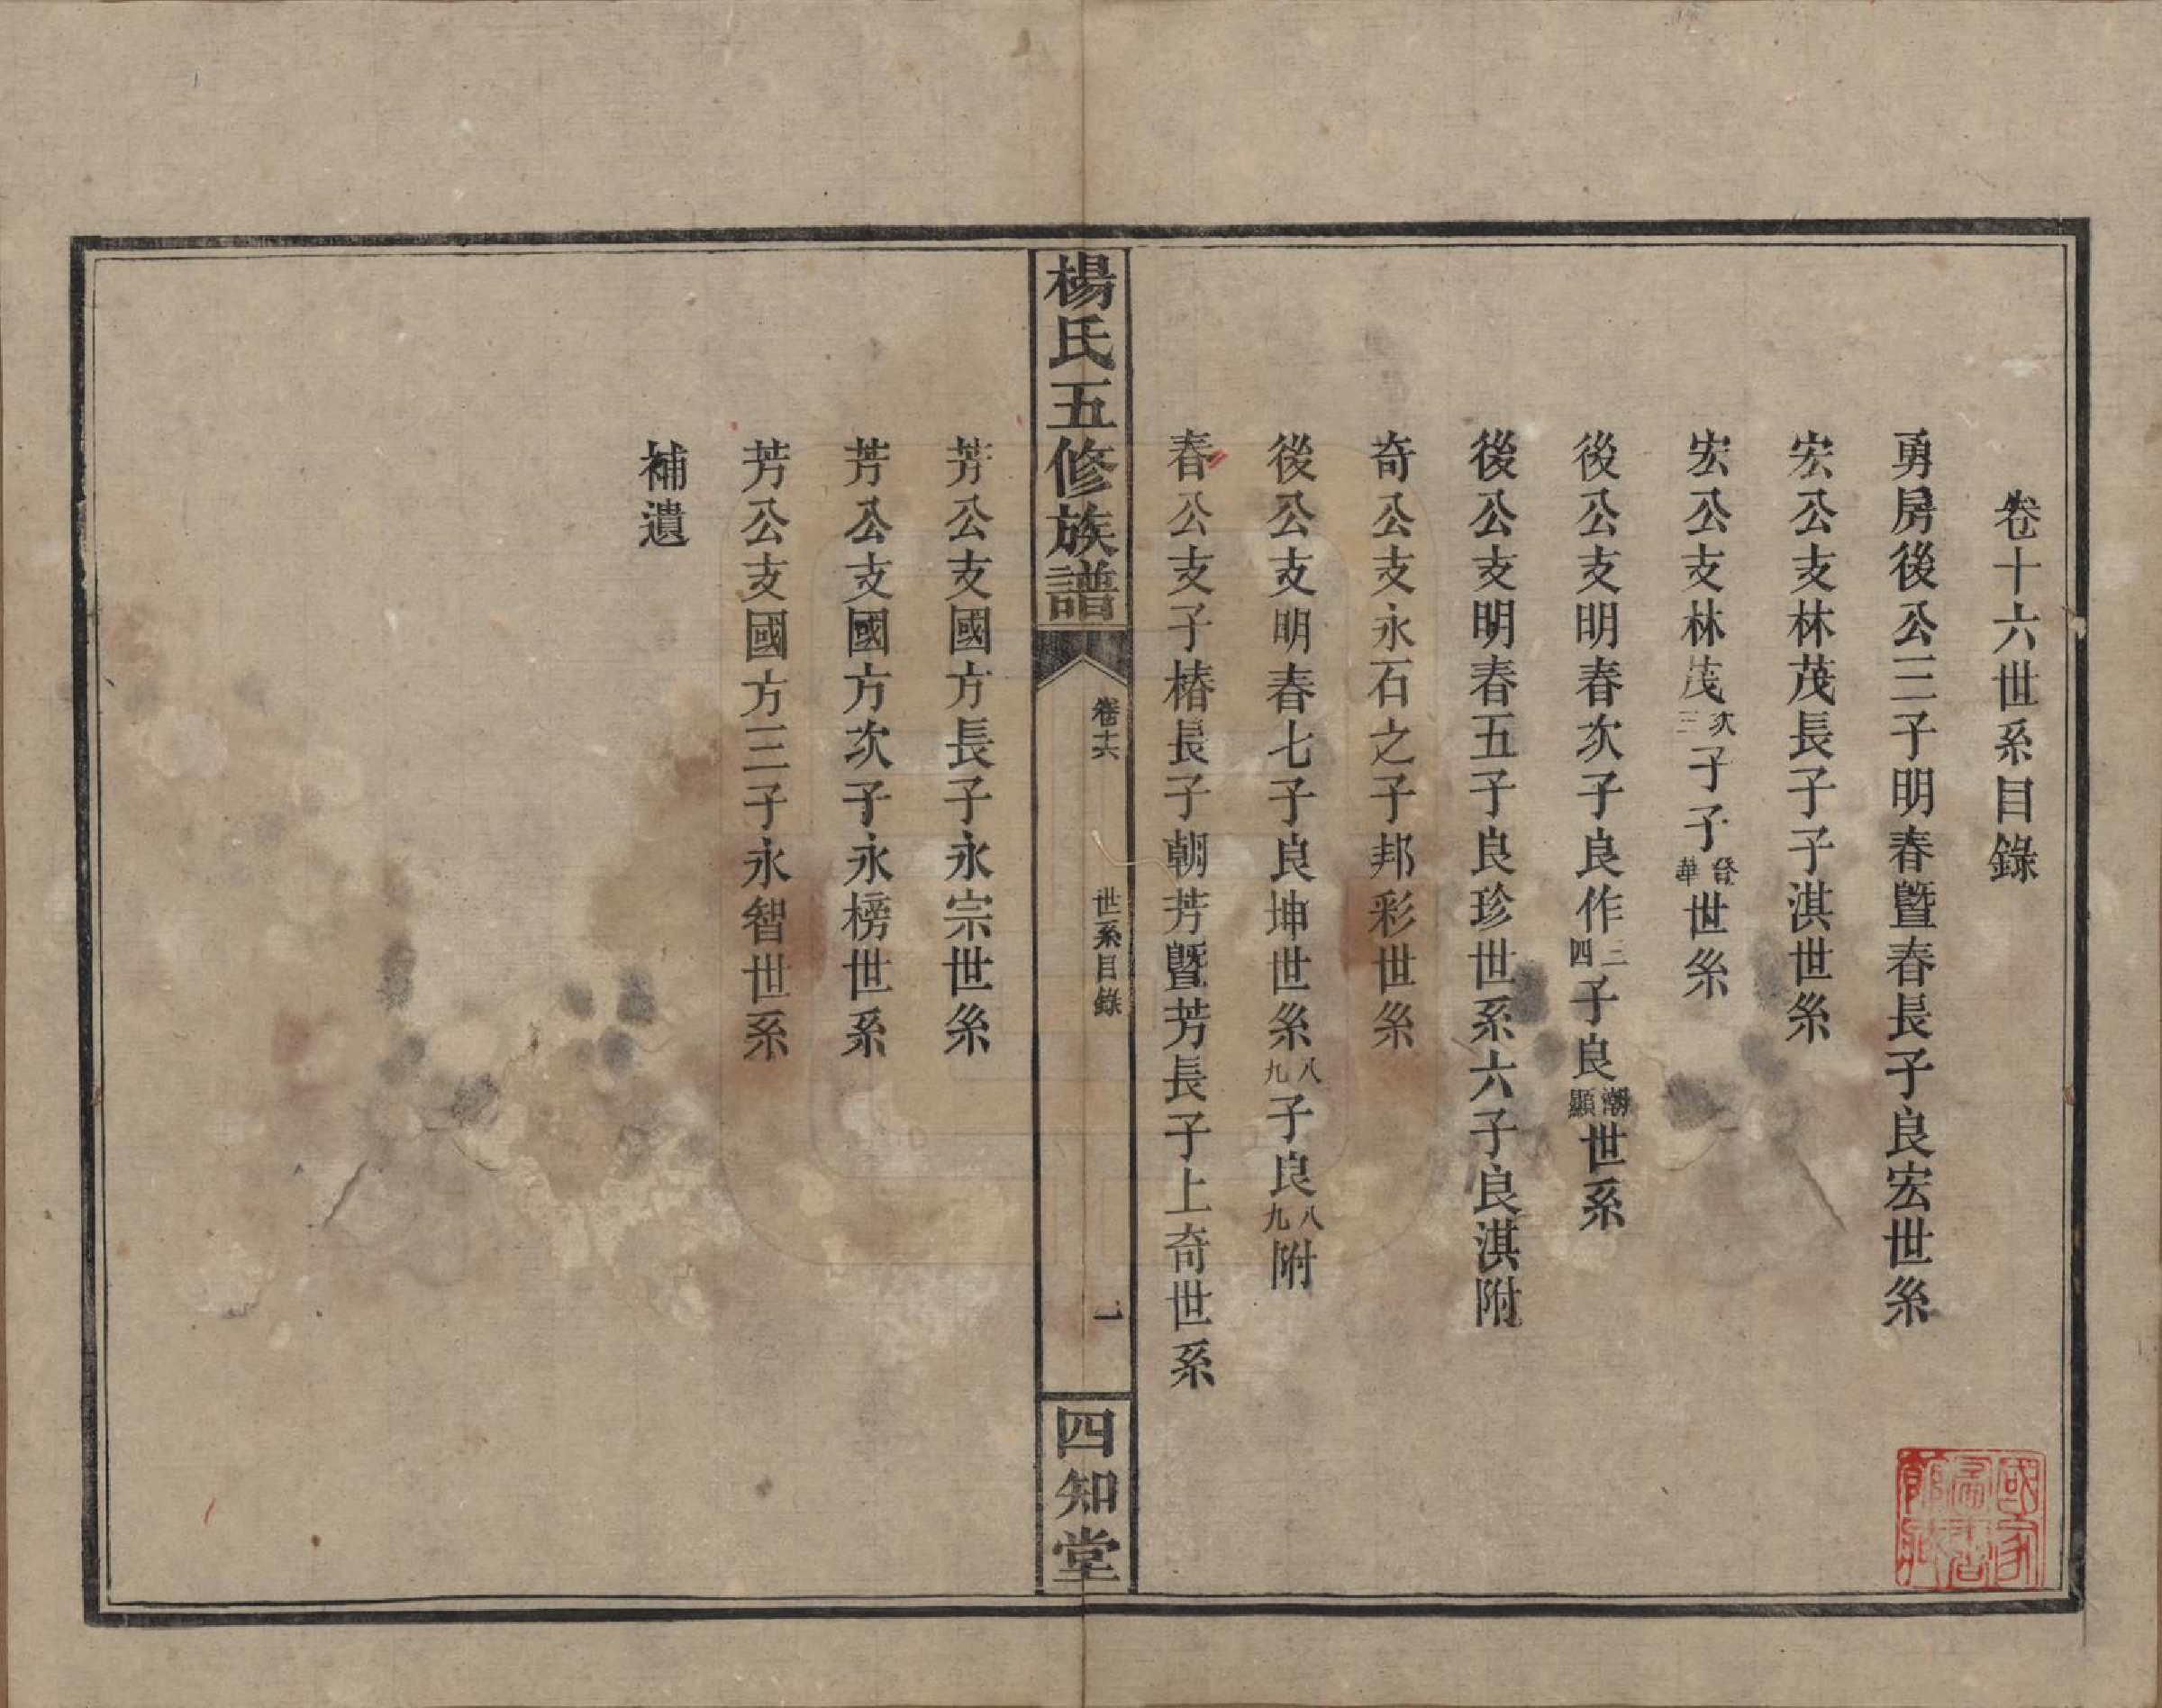 卷十六世系目錄
勇房後公三子明春曁春長子良宏世系
宏公支林茂長子子淇世系
宏公支林茂次三子子發華世系
後公支明春次子良作三四子良潮顯世系
後公支明春五子良珍世系六子良淇附
奇公支永石之子邦彩世系
後公支明春七子良坤世系八九子良八九附
春公支子椿長子朝芳曁芳長子上奇世系
楊氏五修族譜
卷十六
世系目錄
一
四知堂
芳公支國方長子永宗世系
芳公支國方次子永榜世系
芳公支國方三子永智世系
補遺
國家圖書館藏